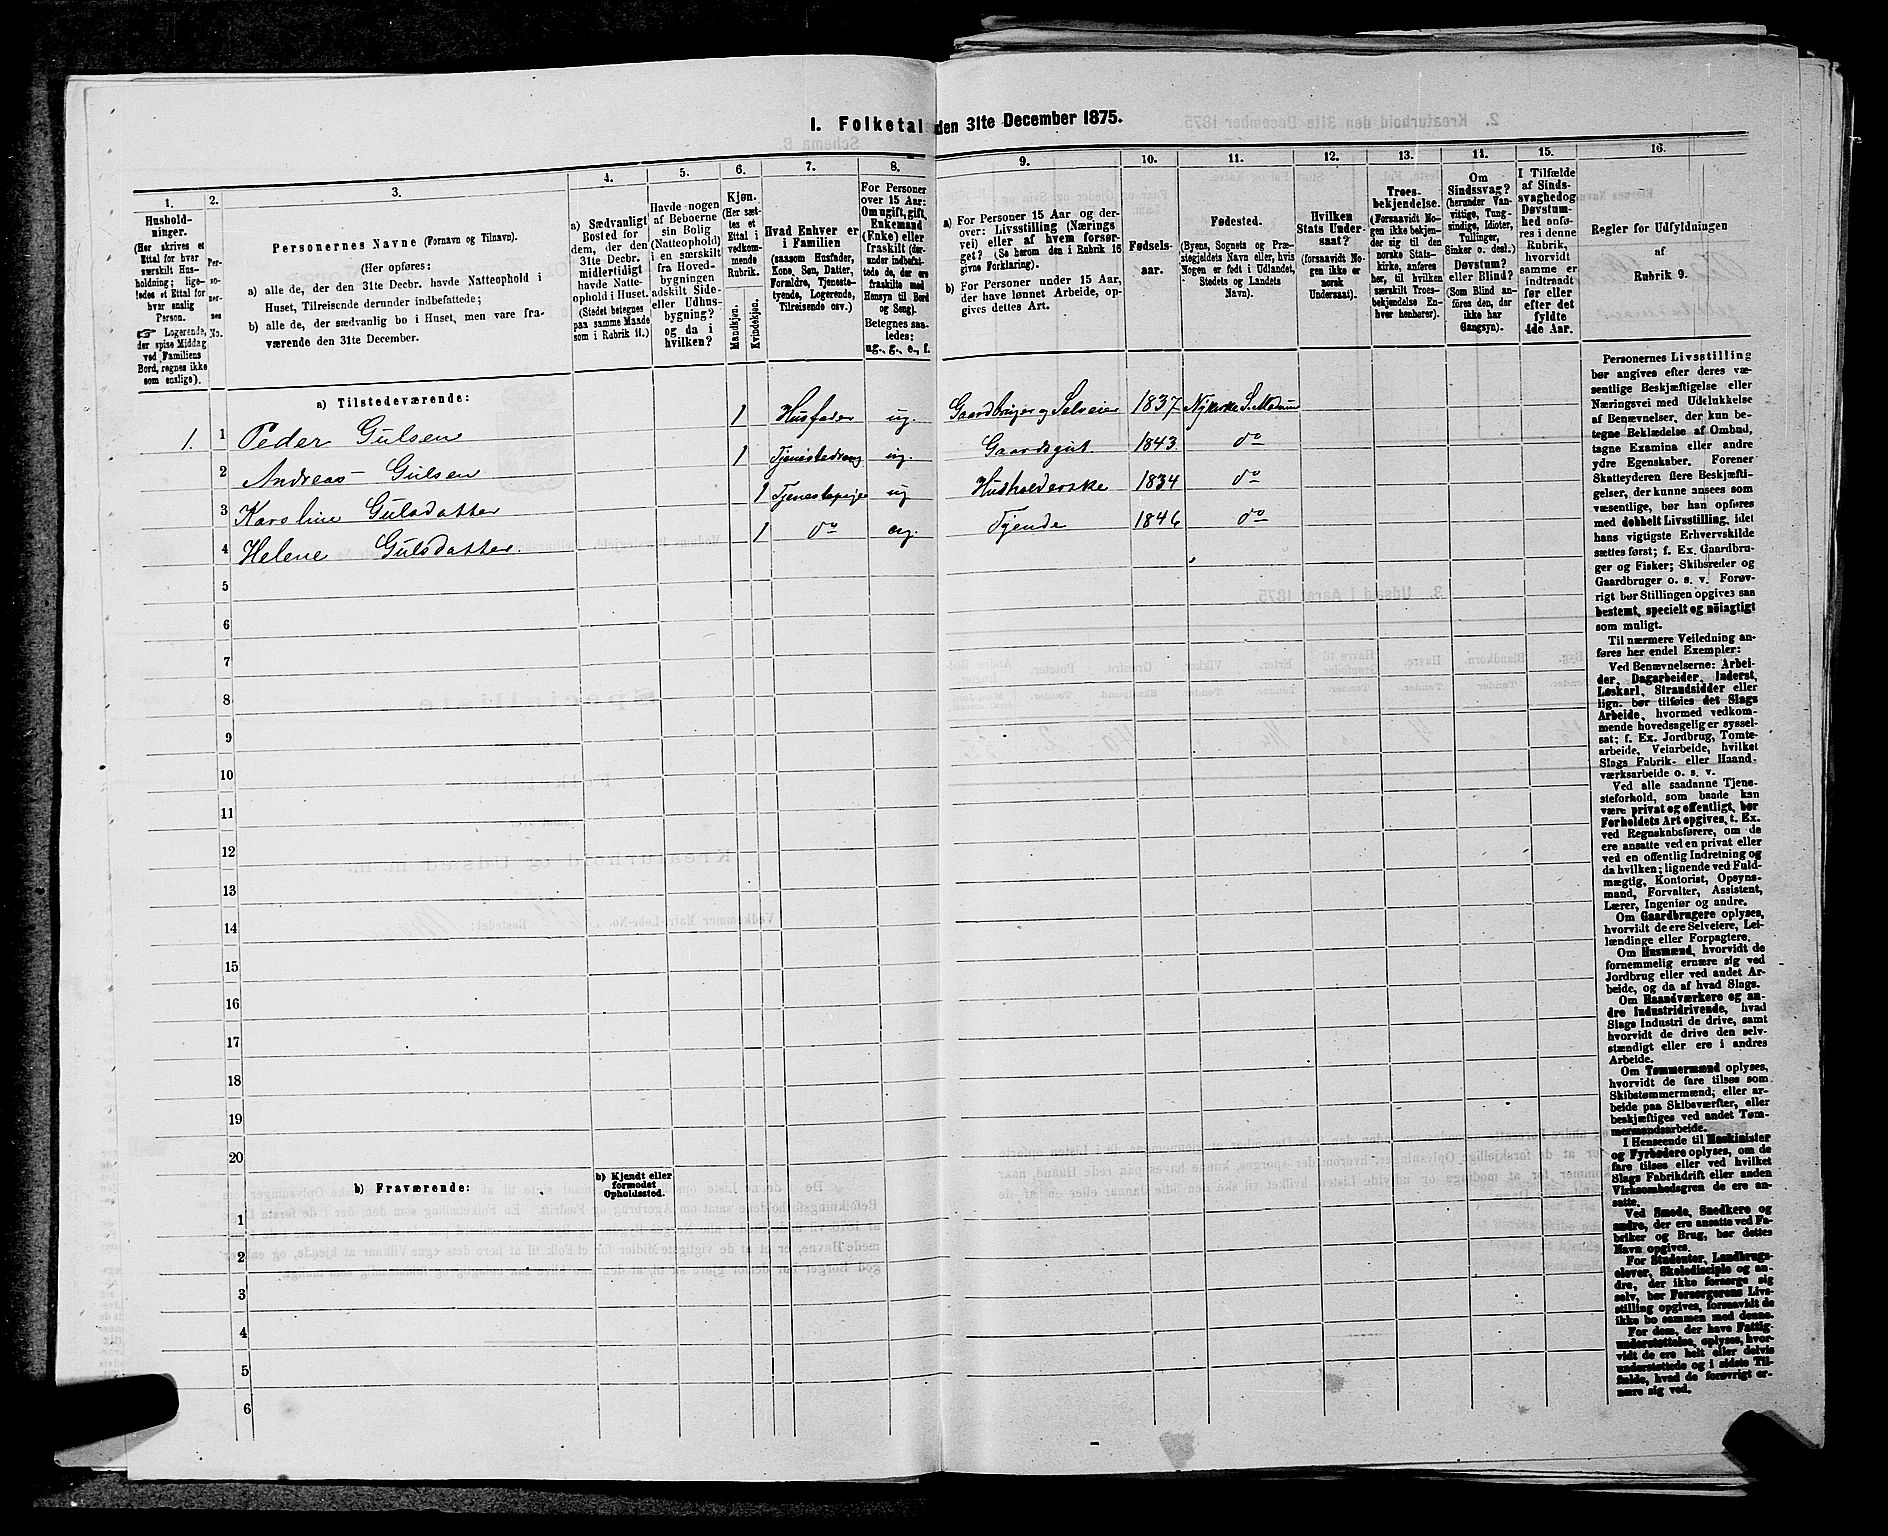 I. Folketal den 31te December 1875.
1.
Hushold-
ninger.
(Her skrives et
Ettal for hver
særskilt Hus-
holdning; lige-
ledes et Ettal for
hver enslig
Person.
☞ Logerende,
der spise Middag
ved Familiens
Bord, regnes ikke
som enslige).
2.
Per-
so-
ner-
nes
No.
3.
Personernes Navne (Fornavn og Tilnavn).
(Her opføres:
a) alle de, der den 31te Decbr. havde Natteophold i
Huset, Tilreisende derunder indbefattede;
b) alle de, der sædvanlig bo i Huset, men vare fra-
værende den 31te December.
4.
a) Sædvanligt
Bosted for
dem, der den
31te Decbr.
midlertidigt
havde Natte-
ophold i Huset.
(Stedet betegnes
paa samme Maade
som i Rubrik 11.)
5.
Havde nogen
af Beboerne
sin Bolig
(Natteophold)
i en særskilt
fra Hoved-
bygningen
adskilt Side-
eller Udhus-
bygning?
og da i
hvilken?
6.
Kjøn.
(Her sæt-
tes et
Ettal i
vedkom-
mende
Rubrik.
Mandkjøn.
Kvindekjøn.
7.
Hvad Enhver er
i Familien
(saasom Husfader,
Kone, Søn, Datter,
Forældre, Tjeneste-
tyende, Logerende,
Tilreisende osv.)
8.
For Personer
over 15 Aar:
Om ugift, gift,
Enkemand
(Enke) eller
fraskilt (der-
under indbefat-
tede de, der ere
fraskilte med
Hensyn til Bord
og Seng).
Betegnes saa-
ledes:
ug., g., e., f.
9.
a) For Personer 15 Aar og der-
over: Livsstilling (Nærings
vei) eller af hvem forsør-
get? (Se herom den i Rubrik 16
givne Forklaring).
b) For Personer under 15 Aar,
der have lønnet Arbeide, op-
gives dettes Art.
10.
Fødsels-
aar.
11.
Fødested.
(Byens, Sognets og Præ-
stegjeldets Navn eller, hvis
Nogen er født i Udlandet,
Stedets og Landets
Navn).
12.
Hvilken
Stats Under-
saat?
(forsaavidt No-
gen ikke er
norsk
Undersaat).
13.
Troes-
bekjendelse.
(Forsaavidt No-
gen ikke bekjen-
der sig til den
norske Stats-
kirke, anføres
her, til hvilken
særskilt Troes-
bekjendelse En-
hver henhører).
14.
Om
Sindssvag?
(herunder Van-
vittige, Tung-
sindige, Idioter,
Tullinger,
Sinker o. desl.)
Døvstum?
eller Blind?
(Som Blind an-
føres den, der
ikke har
Gangsyn).
15.
I Tilfælde
af Sinds-
svaghed og
Døvstum-
hed anfø-
res i denne
Rubrik,
hvorvidt
samme er
indtraadt
før eller
efter det
fyldte
4de Aar.
16.
Regler for Udfyldningen
af
Rubrik 9.
a) Tilstedeværende:
1. 1 Peder Gulsen 1 Husfader ug. Gaardbruger og Selveier 1837 Nykirke S. Modum
2 Andreas Gulsen 1 Tjenestedreng ug. Gaardsgut 1843. do
3 Karoline Gulsdatter 1 Tjenestepige ug Husholderske 1834 do
4 Helene Gulsdatter. 1 do ug. Tyende 1846 do
5
6
7
8
9
10
11
12
13
14
15
16
17
18
19
20
b) Fraværende:
b) Kjendt eller
formodet
Opholdssted.
1
2
3
4
5
6
Personernes Livsstilling
bør angives efter deres væ-
sentlige Beskjæftigelse eller
Næringsvei med Udelukkelse
af Benævnelser, der kun be-
tegne Beklædelse af Ombud,
tagne Examina eller andre
ydre Egenskaber. Forener
Skatteyderen flere Beskjæfti-
gelser, der kunne ansees som
væsentlige, bør han opføres
med dobbelt Livsstilling, idet
hans vigtigste Erhvervskilde
sættes først; f. Ex. Gaardbru-
ger og Fisker; Skibsreder og
Gaardbruger o. s. v. Forøv-
rigt bør Stillingen opgives saa
bestemt, specielt og nöiagtigt
som muligt.
Til nærmere Veiledning an-
føres her endel Exempler:
Ved Benævnelserne: Arbei-
der, Dagarbeider, Inderst,
Løskarl, Strandsidder eller
lign. bør tilføies det Slags
Arbeide, hvormed vedkom-
mende hovedsagelig er syssel-
sat; f. Ex. Jordbrug, Tomte-
arbeide, Veiarbeide, hvilket
Slags Fabrik- eller Haand-
værksarbeide o. s. v.
Ved alle saadanne Tjene-
steforhold, som baade kan
være privat og offentligt, bør
Forholdets Art opgives, t. Ex.
ved Regnskabsførere, om de
ere ansatte ved en privat eller
ved en offentlig Indretning og
da hvilken; lignende ved Fuld-
mægtig, Kontorist, Opsyns-
mand, Forvalter, Assistent,
Lærer, Ingeniør og andre.
Om Gaardbrugere oplyses,
hvorvidt de ere Selveiere, Lei-
lændinge eller Forpagtere.
Om Husmænd, hvorvidt de
fornemmelig ernære sig ved
Jordbrug eller ved andet Ar-
beide, og da af hvad Slags.
Om Haandværkere og an-
dre Industridrivende, hvad
Slags Industri de drive, samt
hvorvidt de drive den selv-
stændigt eller ere i andres
Arbeide.
Om Tømmermænd oplyses,
hvorvidt de fare tilsøs som
Skibstømmermænd; eller ar-
beide paa Skibsværfter, eller
beskjæftiges ved andet Tøm-
mermandsarbeide.
I Henseende til Maskinister
og Fyrbødere oplyses, om de
fare tilsøs eller ved hvilket
Slags Fabrikdrift eller anden
Virksomhedsgren de ere an-
satte.
Ved Smede, Snedkere og
andre, der ere ansatte ved Fa-
briker og Brug, bør dettes
Navn opgives.
For Studenter, Landbrugs-
elever, Skoledisciple og an-
dre, der ikke forsørge sig
selv, bør Forsørgerens Livs-
stilling opgives, forsaavidt de
ikke bo sammen med denne.
For dem, der have Fattig-
understøttelse, oplyses, hvor-
vidt de ere helt eller delvis
understøttede og i sidste Til-
fælde, hvad de forøvrigt er-
nære sig ved.